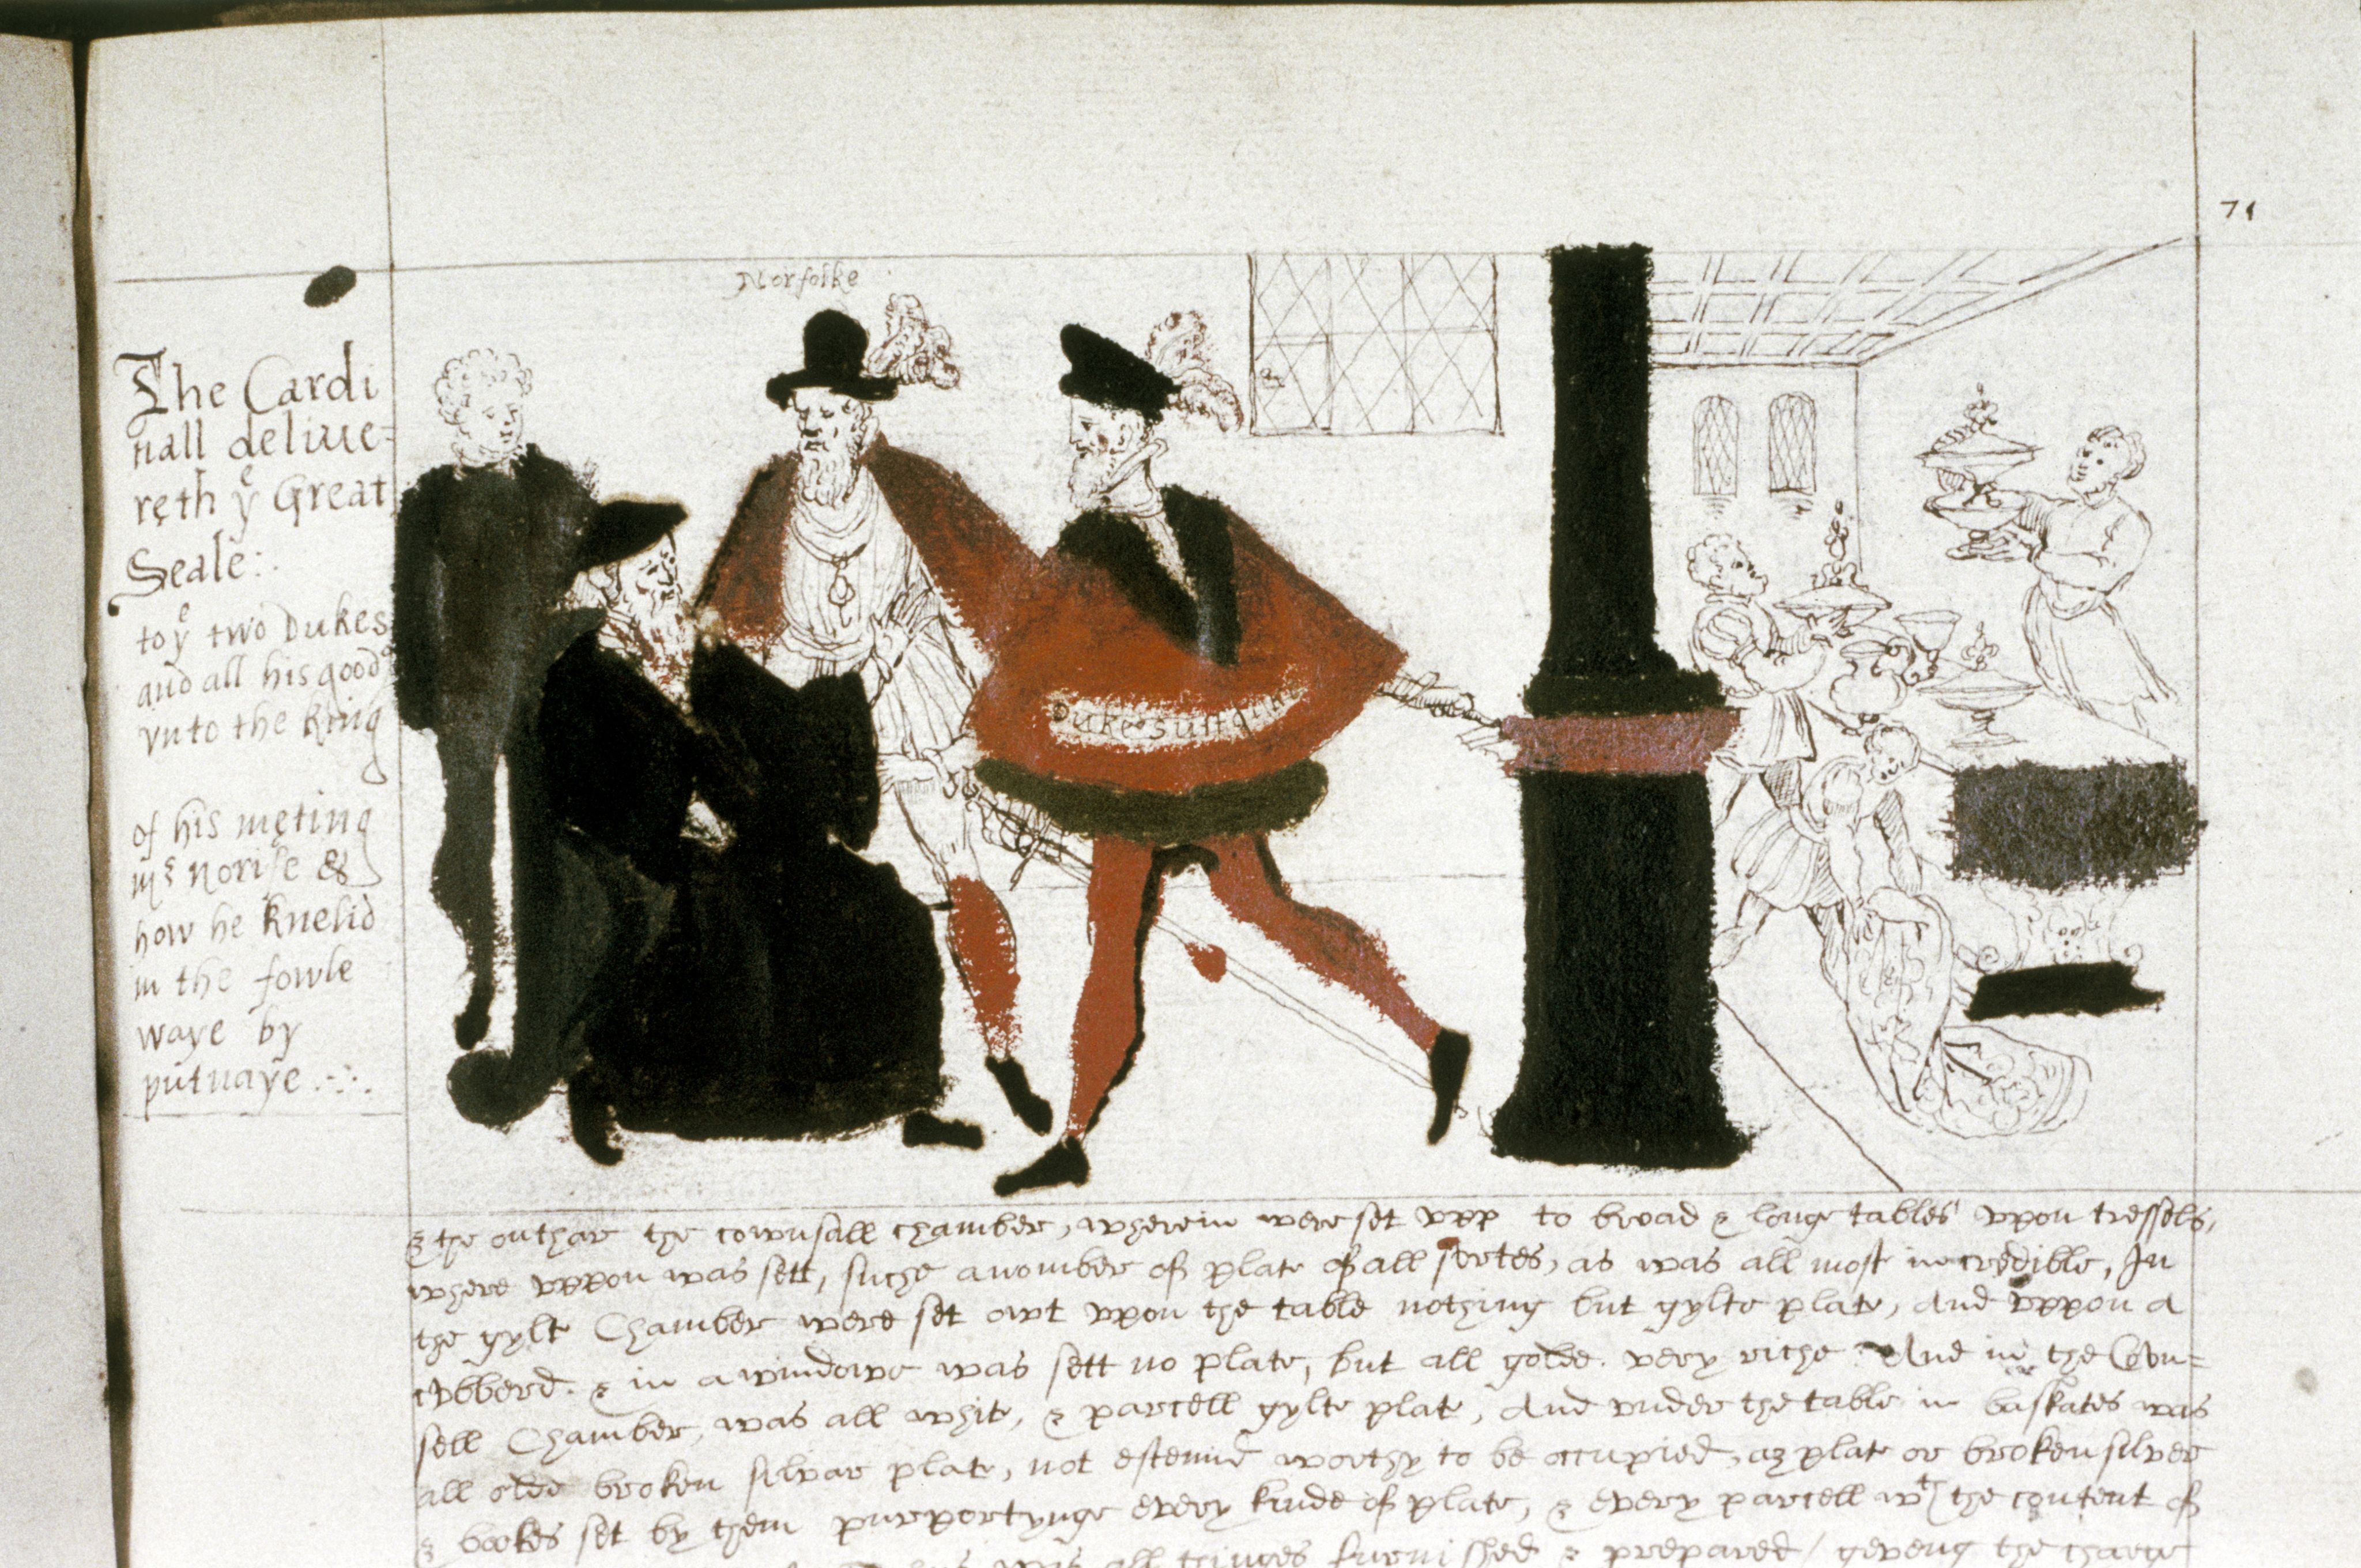 71
Norfolke
The Cardi
nall deliue=
reth yᵉ Great
Seale:
to yᵉ two Dukes
and all his goodꝭ
vnto the king
of his meting
mʳ Norise &
how he knelid
in the fowle
waye by
putnaye
Duke Suff
& the outhar the cownsall chamber, wherin were set vpp to broad & longe tables vpon tressels,
where vppon was sett, suche a nomber of plate of all sortes, as was all most incredible, In
the gylt Chamber were set owt vpon the table nothing but gylte plate, And vppon a
cubberd & in a windowe was sett no plate, but all golde very riche And in the Coun=
sell Chamber, was all whit, & parcell gylte plate, And vnder the table in baskates was
all olde broken silvar plate, not estemid worthy to be occupied, as plate or broken silver
& bookes set by them purportynge every kinde of plate, & every parcell wᵗʰ the content of
was all thinges furnisshed & prepared / geveng the charge